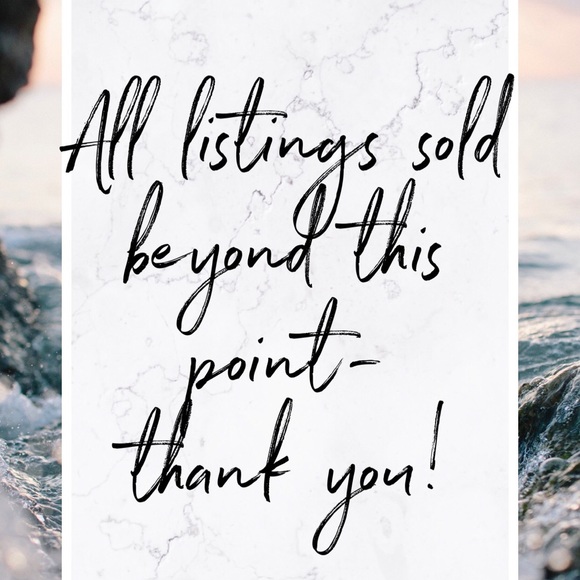 All listings sold
beyond this
point-
thank you!